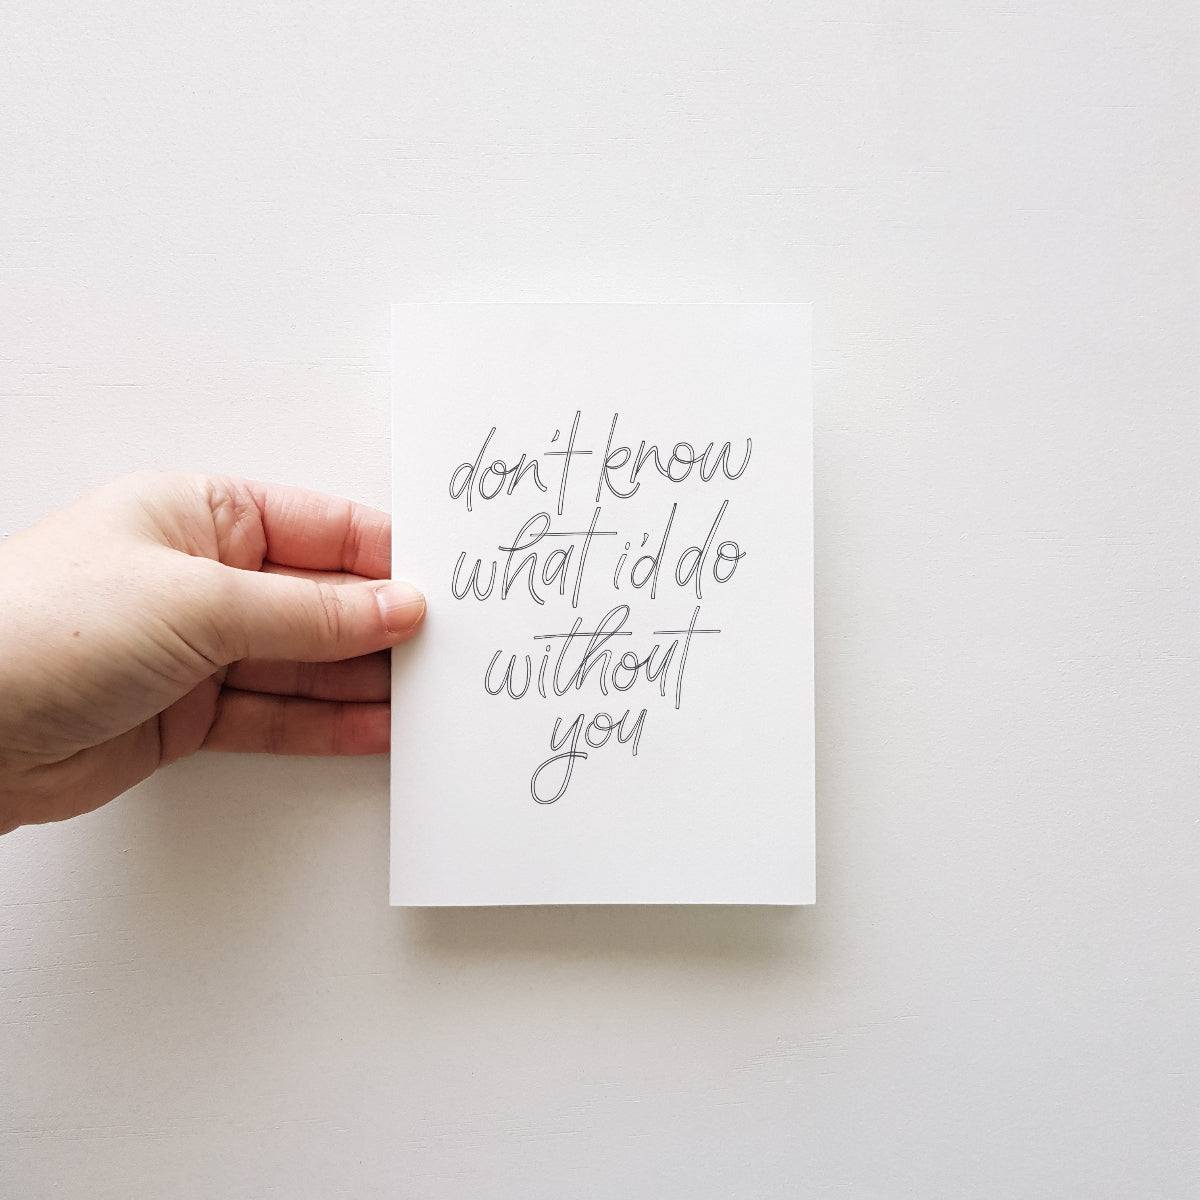 don't know
what i'd do
without
you